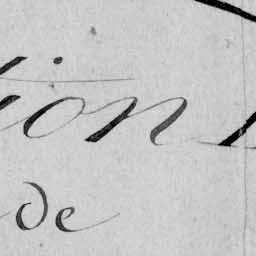 tion
de